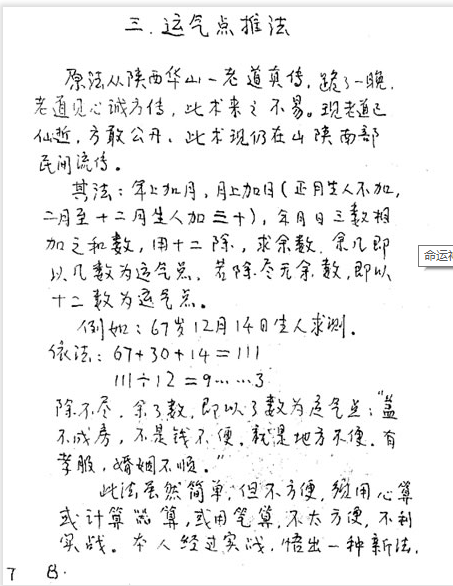 三.运气点推法
原法从陕西华山一老道真传,跪了一晚.
老道见心诚方传,此术来之不易。现老道已
仙逝,方敢公开.此术现仍在山陕南部
民间流传。
其法:年上加月,月上加日(正月生人不加,
二月至十二月生人加三十),年月日三数相
加之和数,用十二除,求余数.余几即
以几数为运气点.若除尽无余数,即以
十二数为运气点。
例如:67岁12月14日生人求测.
依法:67+30+14=111
111÷12=9……3
除不尽.余3数,即以3数为运气点:"盖
不成房,不是钱不便.就是地方不便.有
孝服,婚姻不顺."
此法虽然简单,但不方便,须用心算
或计算器算,或用笔算,不太方便,不利
实战。本人经过实战,悟出一种新法.
7 B.
命运